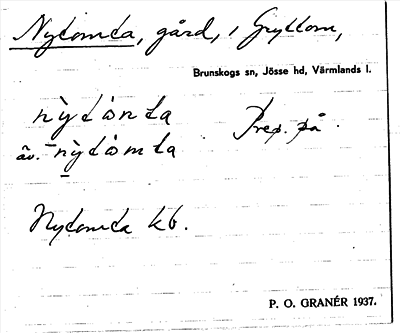 Nytomta, gård, i Gryttom,
Brunskogs sn, Jösse hd, Värmlands l.
nỳtònta Prep. på.
äv. nỳtòmta
Nytomta kb.
P. O. GRANÉR 1937.